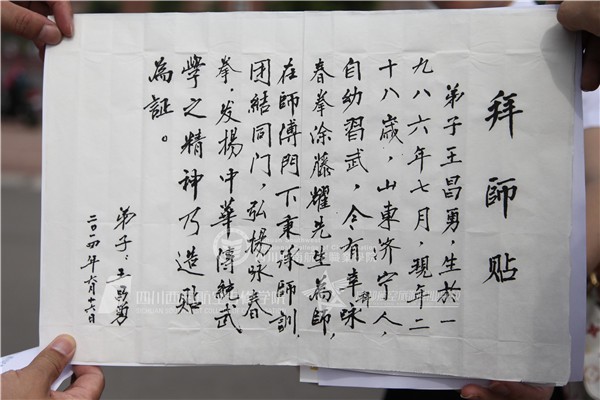 拜師貼
弟子王昌勇,生於一
九八六年七月,現年二
十八歲,山東济宁人,
自幼習武,今有幸拜詠
春拳涂藤耀先生為師,
在師傅門下秉承師訓,
团結同门,弘揚咏春
拳,发揚中華傳統武
學之精神乃造貼
為証。
弟子:王昌勇
二〇一四年六月十六日